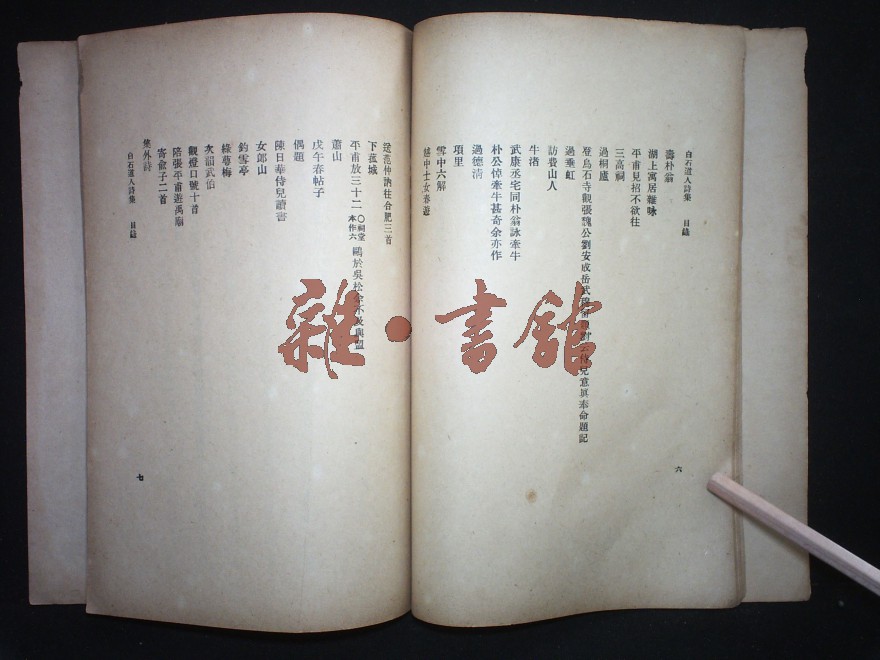 白石道人詩集 目錄
壽朴翁
湖上寓居雜咏
平甫見招不欲往
三高祠
過桐廬
登烏石寺觀張魏公劉安成岳武侍兒意眞奉命題記
過垂虹
訪費山人
牛渚
武康丞宅同朴翁詠牽牛
朴公悼牽牛甚奇余亦作
過德清
項里
雪中六解
越中士女春遊
六
送范仲訥往合肥三首
下菰城
平甫放三十二〇祠堂本作六鷗於吳松余不及與盟
蕭山
戊午春帖子
偶題
陳日華侍兒讀書
女郎山
釣雪亭
綠萼梅
次韻武伯
觀燈口號十首
陪張平甫遊禹廟
寄俞子二首
集外詩
白石道人詩集 目錄
七
雜·書館